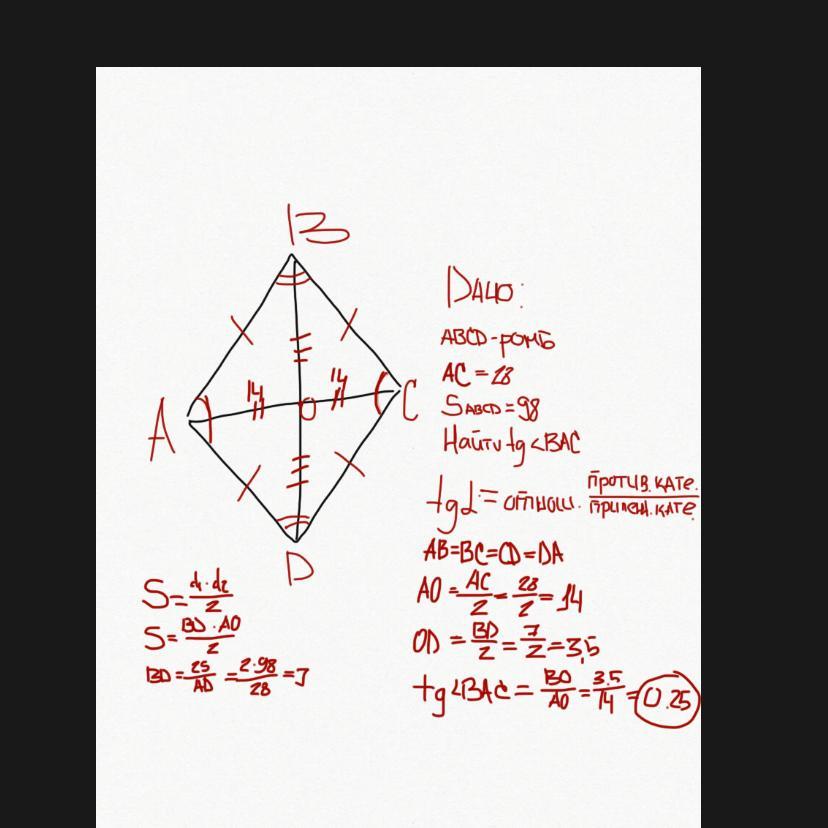 B
A
14
14
O
C
D
Дано:
ABCD-ромб
AC = 28
SABCD = 98
Найти tg <BAC
tgα = отнош. против. кате. / прилеж. кате.
AB=BC=CD=DA
AO = AC/2 = 28/2 = 14
OD = BD/2 = 7/2 = 3,5
tg <BAC = BO/AO = 3.5/14 = 0.25
S = d1·d2/2
S = BD·AO/2
BD = 2S/AD = 2·98/28 = 7